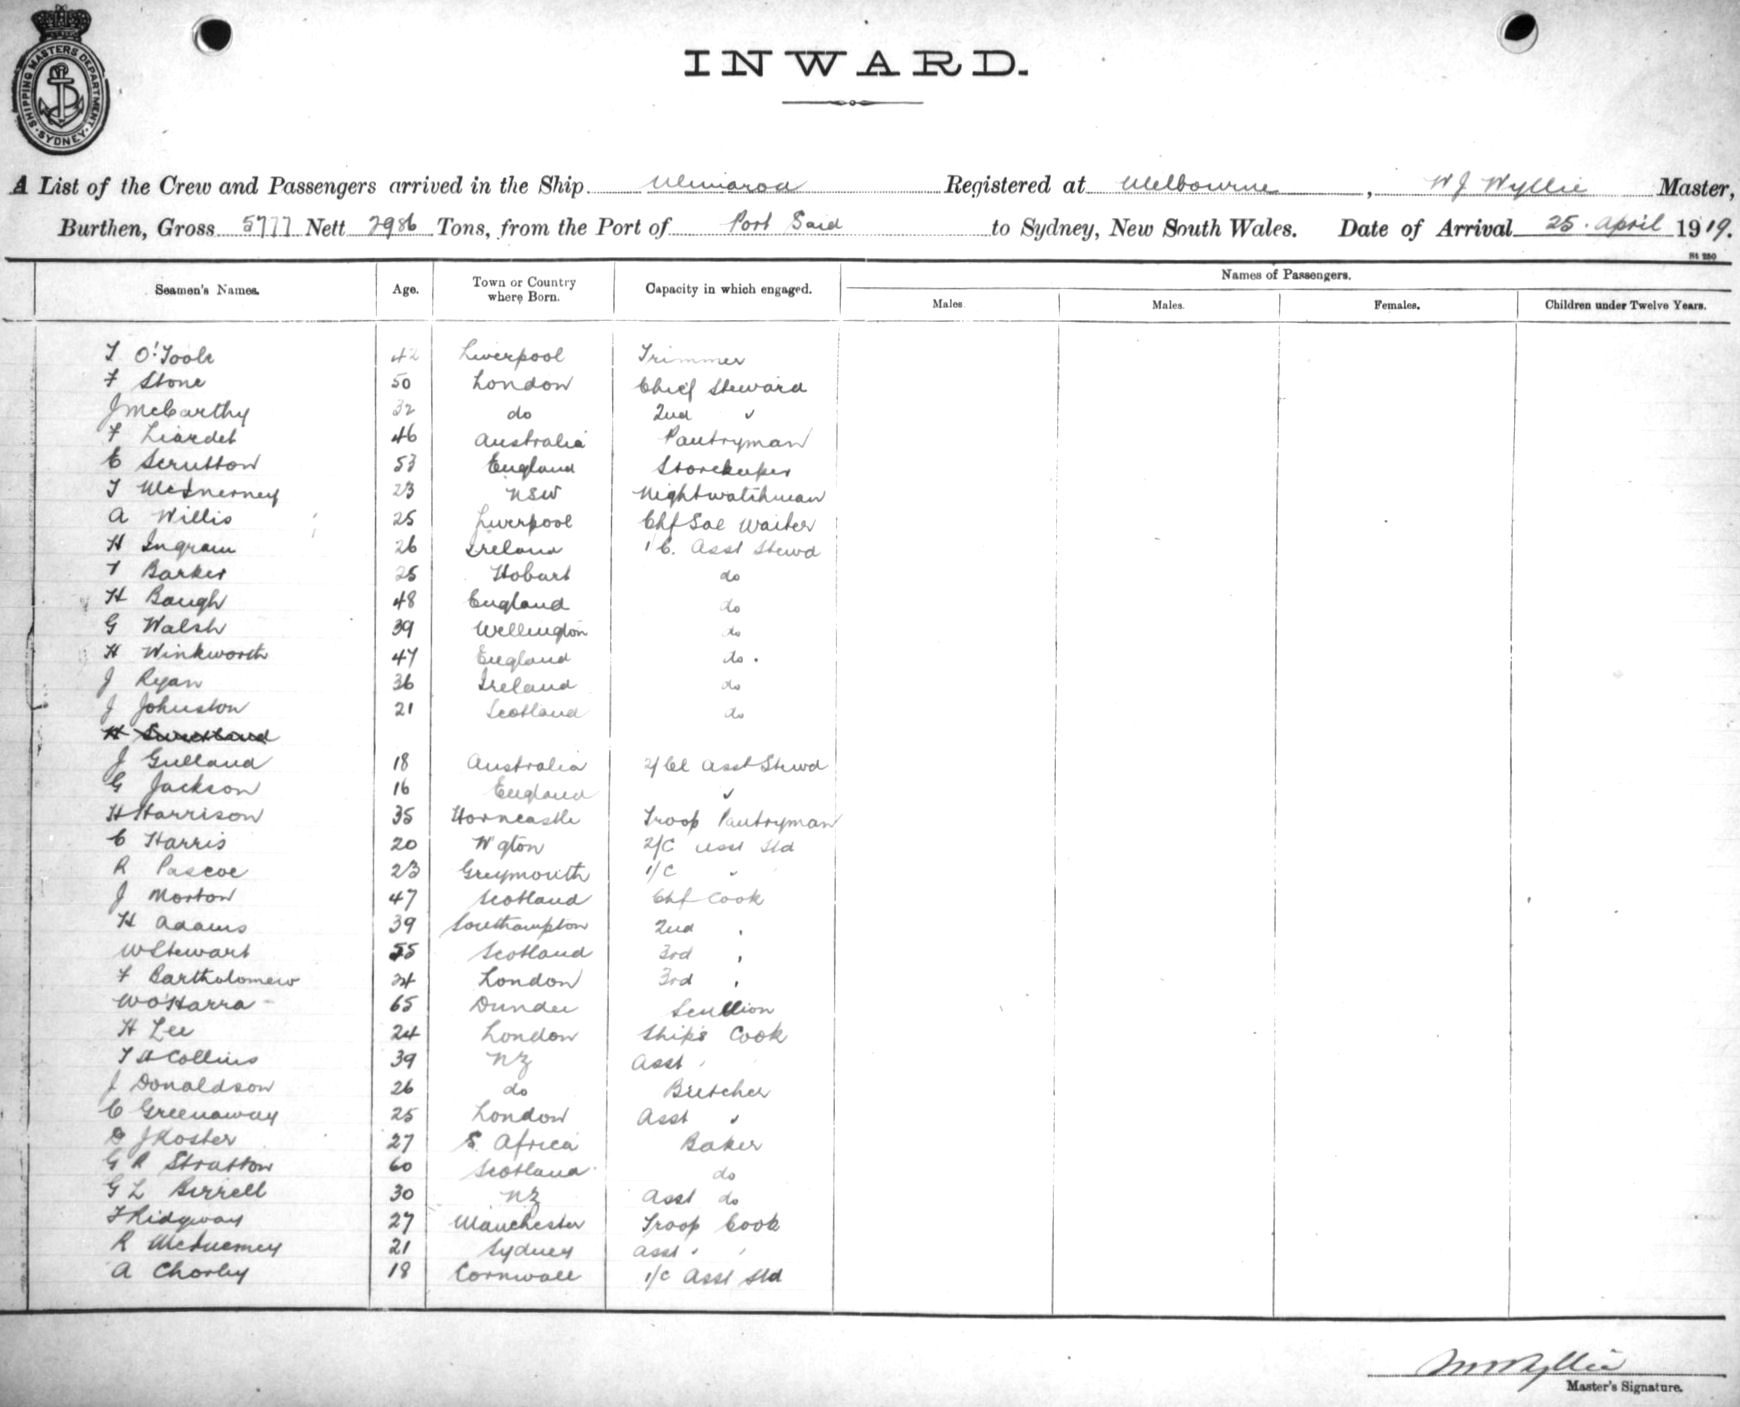 SHIPPING MASTERS DEPARTMENT · SYDNEY ·
INWARD.
A List of the Crew and Passengers arrived in the Ship Ulimaroa Registered at Melbourne, W J Wyllie Master,
Burthen, Gross 5777 Nett 2986 Tons, from the Port of Port Said to Sydney, New South Wales. Date of Arrival 25. April 1919.
St 250
Names of Passengers.
Seamen's Names. Age. Town or Country where Born. Capacity in which engaged. Males. Males. Females. Children under Twelve Years.
T O'Toole 42 Liverpool Trimmer
F Stone 50 London Chief Steward
J McCarthy 32 do 2nd "
F Liardet 46 Australia Pantryman
E Scrutton 53 England Storekeeper
T McInerney 23 NSW Nightwatchman
A Willis 25 Liverpool Chf Sal Waiter
H Ingram 26 Ireland 1 C. Asst Stewd
T Barker 25 Hobart do
H Baugh 48 England do
G Walsh 39 Wellington do
H Winkworth 47 England do.
J Ryan 36 Ireland do
J Johnston 21 Scotland do
H
J Gulland 18 Australia 2/Cl Asst Stewd
G Jackson 16 England "
H Harrison 35 Horncastle Troop Pantryman
C Harris 20 W'gton 2/C Asst Std
R Pascoe 23 Greymouth 1/C "
J Morton 47 Scotland Chf Cook
H Adams 39 Southampton 2nd "
W Stewart 55 Scotland 3rd "
F Bartholomew London 3rd "
W O'Harra 65 Dundee Scullion
H Lee 24 London Ship's Cook
T A Collins 39 NZ Asst "
J Donaldson 26 do Butcher
C Greenaway 25 London Asst "
D J Koster 27 S. Africa Baker
G R Stratton 60 Scotland do
G L Birrell 30 NZ Asst do
T Ridgway 27 Manchester Troop Cook
R McInerney 21 Sydney Asst " "
A Chorley 18 Cornwall 1/C Asst Std
W J Wyllie
Master's Signature.